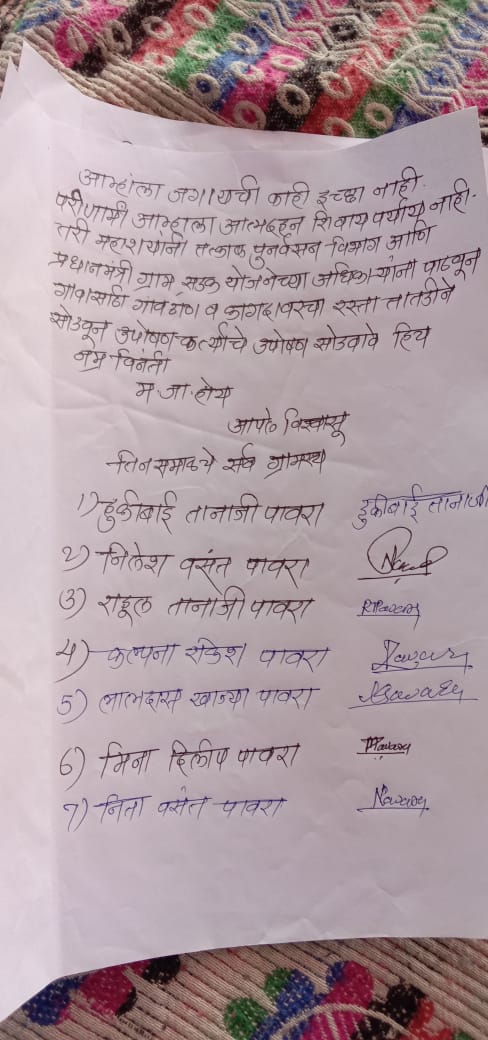 आम्हाला जगायची काही इच्छा नाही.
परीणामी आम्हाला आत्मदहन शिवाय पर्याय नाही.
तरी महाशयांनी तत्काळ पुनर्वसन विभाग आणि
प्रधानमंत्री ग्राम सडक योजनेच्या अधिकार्यांना पाठवून
गावासाठी गावठाण व कागदावरचा रस्ता तातडीने
सोडवून उपोषण कर्त्यांचे उपोषण सोडवावे हिच
नम्र विनंती
म.जा.होय
आपले विश्वासू
सर्व ग्रामस्थ
1) हुकीबाई तानाजी पावरा हुकीबाई तानाजी
2) निलेश वसंत पावरा
3) राहूल तानाजी पावरा RPawara
4) कल्पना राकेश पावरा
5) लालदास खाज्या पावरा
6) मिना दिलीप पावरा
7) निता वसंत पावरा